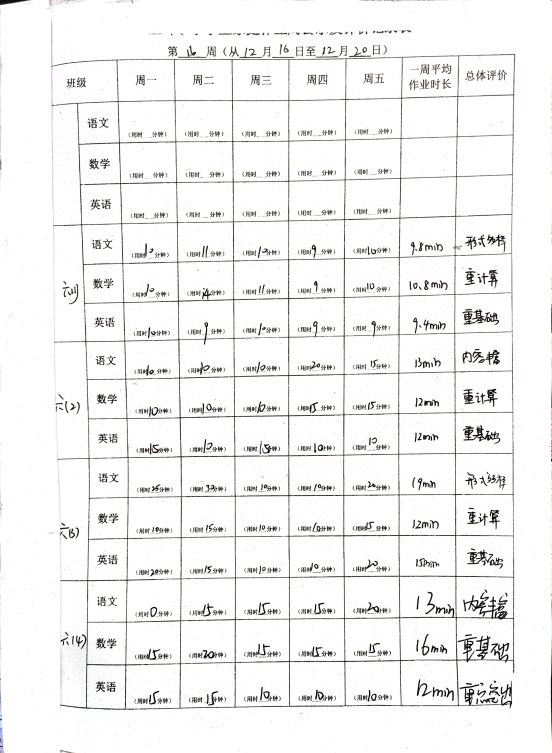 第 16 周（从12月16日至12月20日）
班级 周一 周二 周三 周四 周五 一周平均作业时长 总体评价
语文 （用时__分钟） （用时__分钟） （用时__分钟） （用时__分钟） （用时__分钟）
数学 （用时__分钟） （用时__分钟） （用时__分钟） （用时__分钟） （用时__分钟）
英语 （用时__分钟） （用时__分钟） （用时__分钟） （用时__分钟） （用时__分钟）
六(1) 语文 （用时10分钟） （用时11分钟） （用时10分钟） （用时9分钟） （用时10分钟） 9.8min 形式多样
数学 （用时10分钟） （用时14分钟） （用时11分钟） （用时9分钟） （用时10分钟） 10.8min 重计算
英语 （用时10分钟） （用时9分钟） （用时10分钟） （用时9分钟） （用时9分钟） 9.4min 重基础
六(2) 语文 （用时10分钟） （用时10分钟） （用时10分钟） （用时20分钟） （用时15分钟） 13min 内容丰富
数学 （用时10分钟） （用时10分钟） （用时10分钟） （用时15分钟） （用时15分钟） 12min 重计算
英语 （用时15分钟） （用时10分钟） （用时15分钟） （用时10分钟） （用时10分钟） 12min 重基础
六(3) 语文 （用时25分钟） （用时30分钟） （用时10分钟） （用时10分钟） （用时20分钟） 19min 形式多样
数学 （用时10分钟） （用时15分钟） （用时10分钟） （用时10分钟） （用时15分钟） 12min 重计算
英语 （用时20分钟） （用时15分钟） （用时10分钟） （用时10分钟） （用时20分钟） 15min 重基础
六(4) 语文 （用时0分钟） （用时15分钟） （用时15分钟） （用时15分钟） （用时20分钟） 13min 内容丰富
数学 （用时15分钟） （用时20分钟） （用时15分钟） （用时15分钟） （用时15分钟） 16min 重基础
英语 （用时15分钟） （用时15分钟） （用时10分钟） （用时10分钟） （用时10分钟） 12min